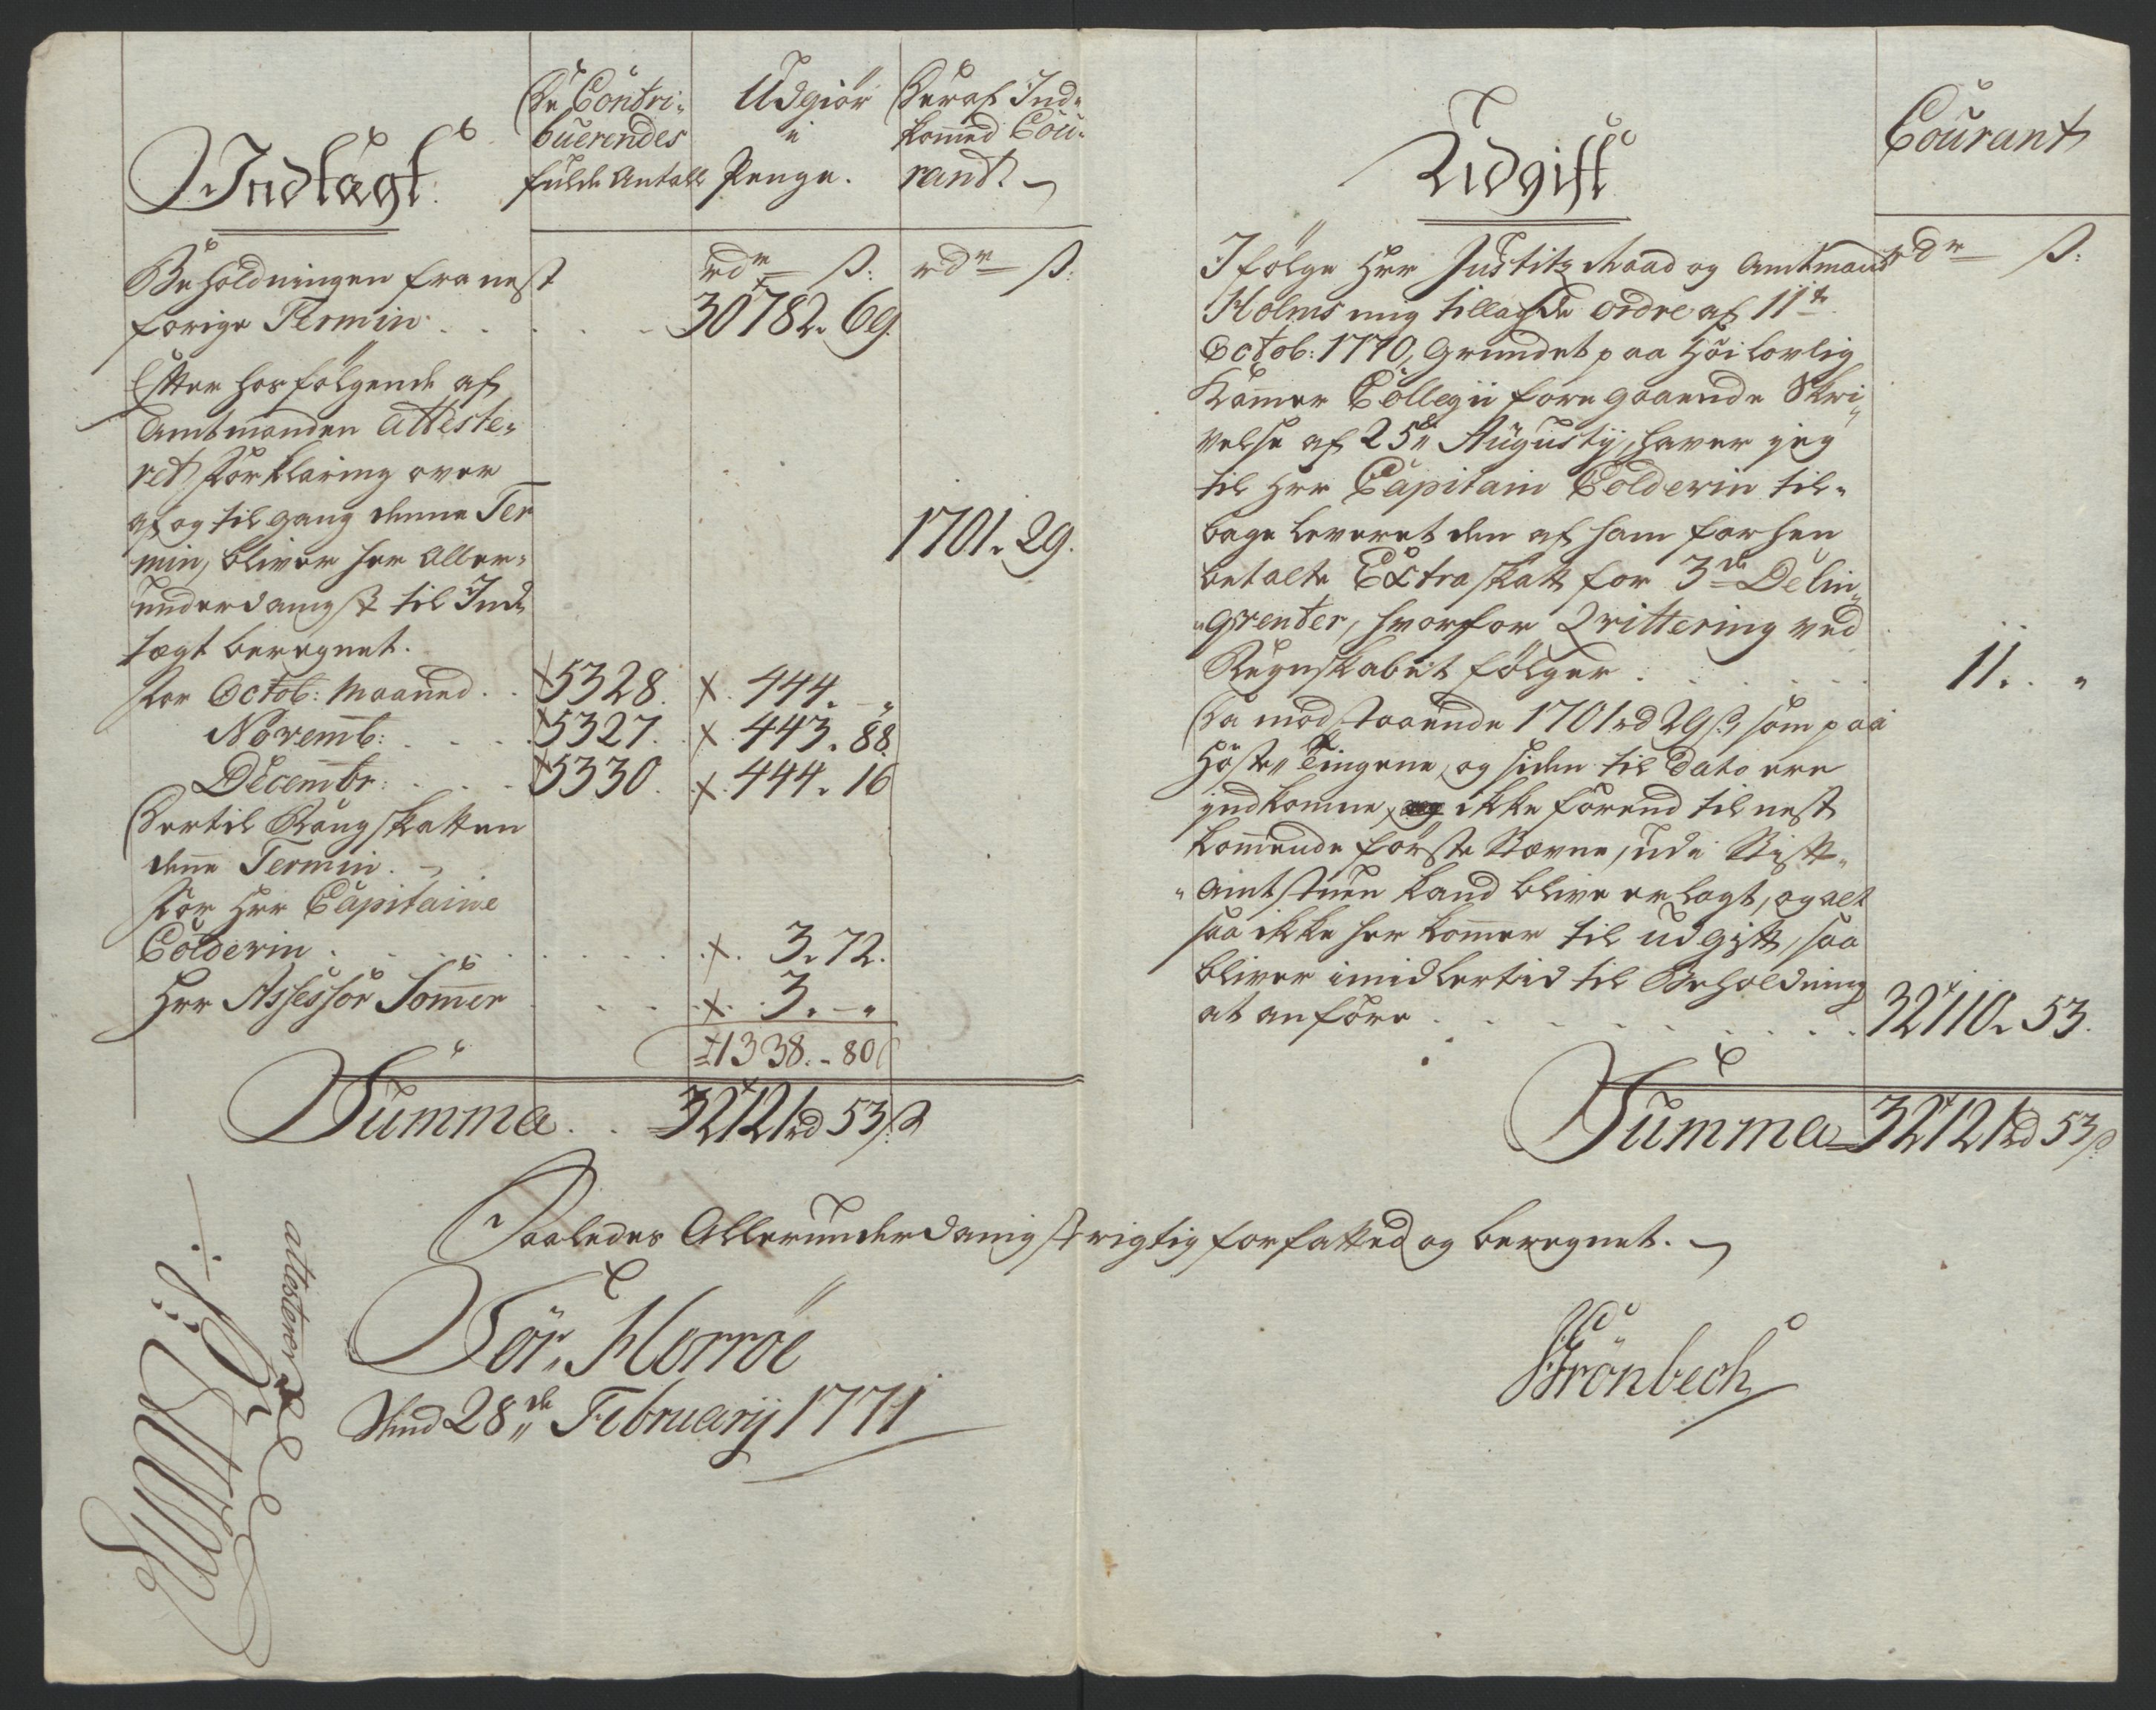 Indtægt
De Contri-
buerendes
fulde Antall
Udgiör
i
Penge.
Deraf Ind-
kommed Cou-
rant
rdr ß:
rdr ß:
Beholdningen fra nest
forige Termin . . . 30782. 69.
Efter hosfölgende af
Amtmanden atteste-
ret Forklaring over
af og tilgang denne Ter
min, bliver her Aller-
underdanigst til Ind-
tægt beregnet. 1701. 29.
For Octob: Maaned . . 5328. 444. "
Novemb: . . . 5327. 443. 88.
Decembr: . . . 5330. 444. 16
Dertil Rangskatten
denne Termin.
For Hrr Capitaine
Colderin . . . 3. 72.
Hrr Assessor Sommer . . . 3. - "
1338. - 80
Summa . . 32121 rd 53 ß
Udgift
Courant
rdr ß:
I fölge Hrr Justitz Raad og Amtmand
Holms mig tillagde ordre af 11te
Octob: 1770, Grundet paa Höilovlig
Kammer Collegii foregaaende Skri-
velse af 25" Augustij, haver jeg
til Hrr Capitain Colderin til-
bage leveret den af ham forhen
betalte Extraskatt for 3de Delin-
qventer, hvorfor Qvittering ved
Regnskabet fölger . . . 11. "
Da modstaaende 1701 rd 29 ß, som paa
Höste Tingene, og siden til Dato ere
indkomne, ikke förend til nest
kommende förste Stevne, udi Stift-
amtstuen kand blive erlagt, og alt
saa ikke her kommer til udgift, saa
bliver imidlertid til Beholdning
at anföre . . . 32110. 53.
Summa 32121 rd 53 ß
Saaledes Allerunderdanigst rigtig forfatted og beregnet.
Sör Horröe
den 28de Februarij 1771
Grönbech
attesterer